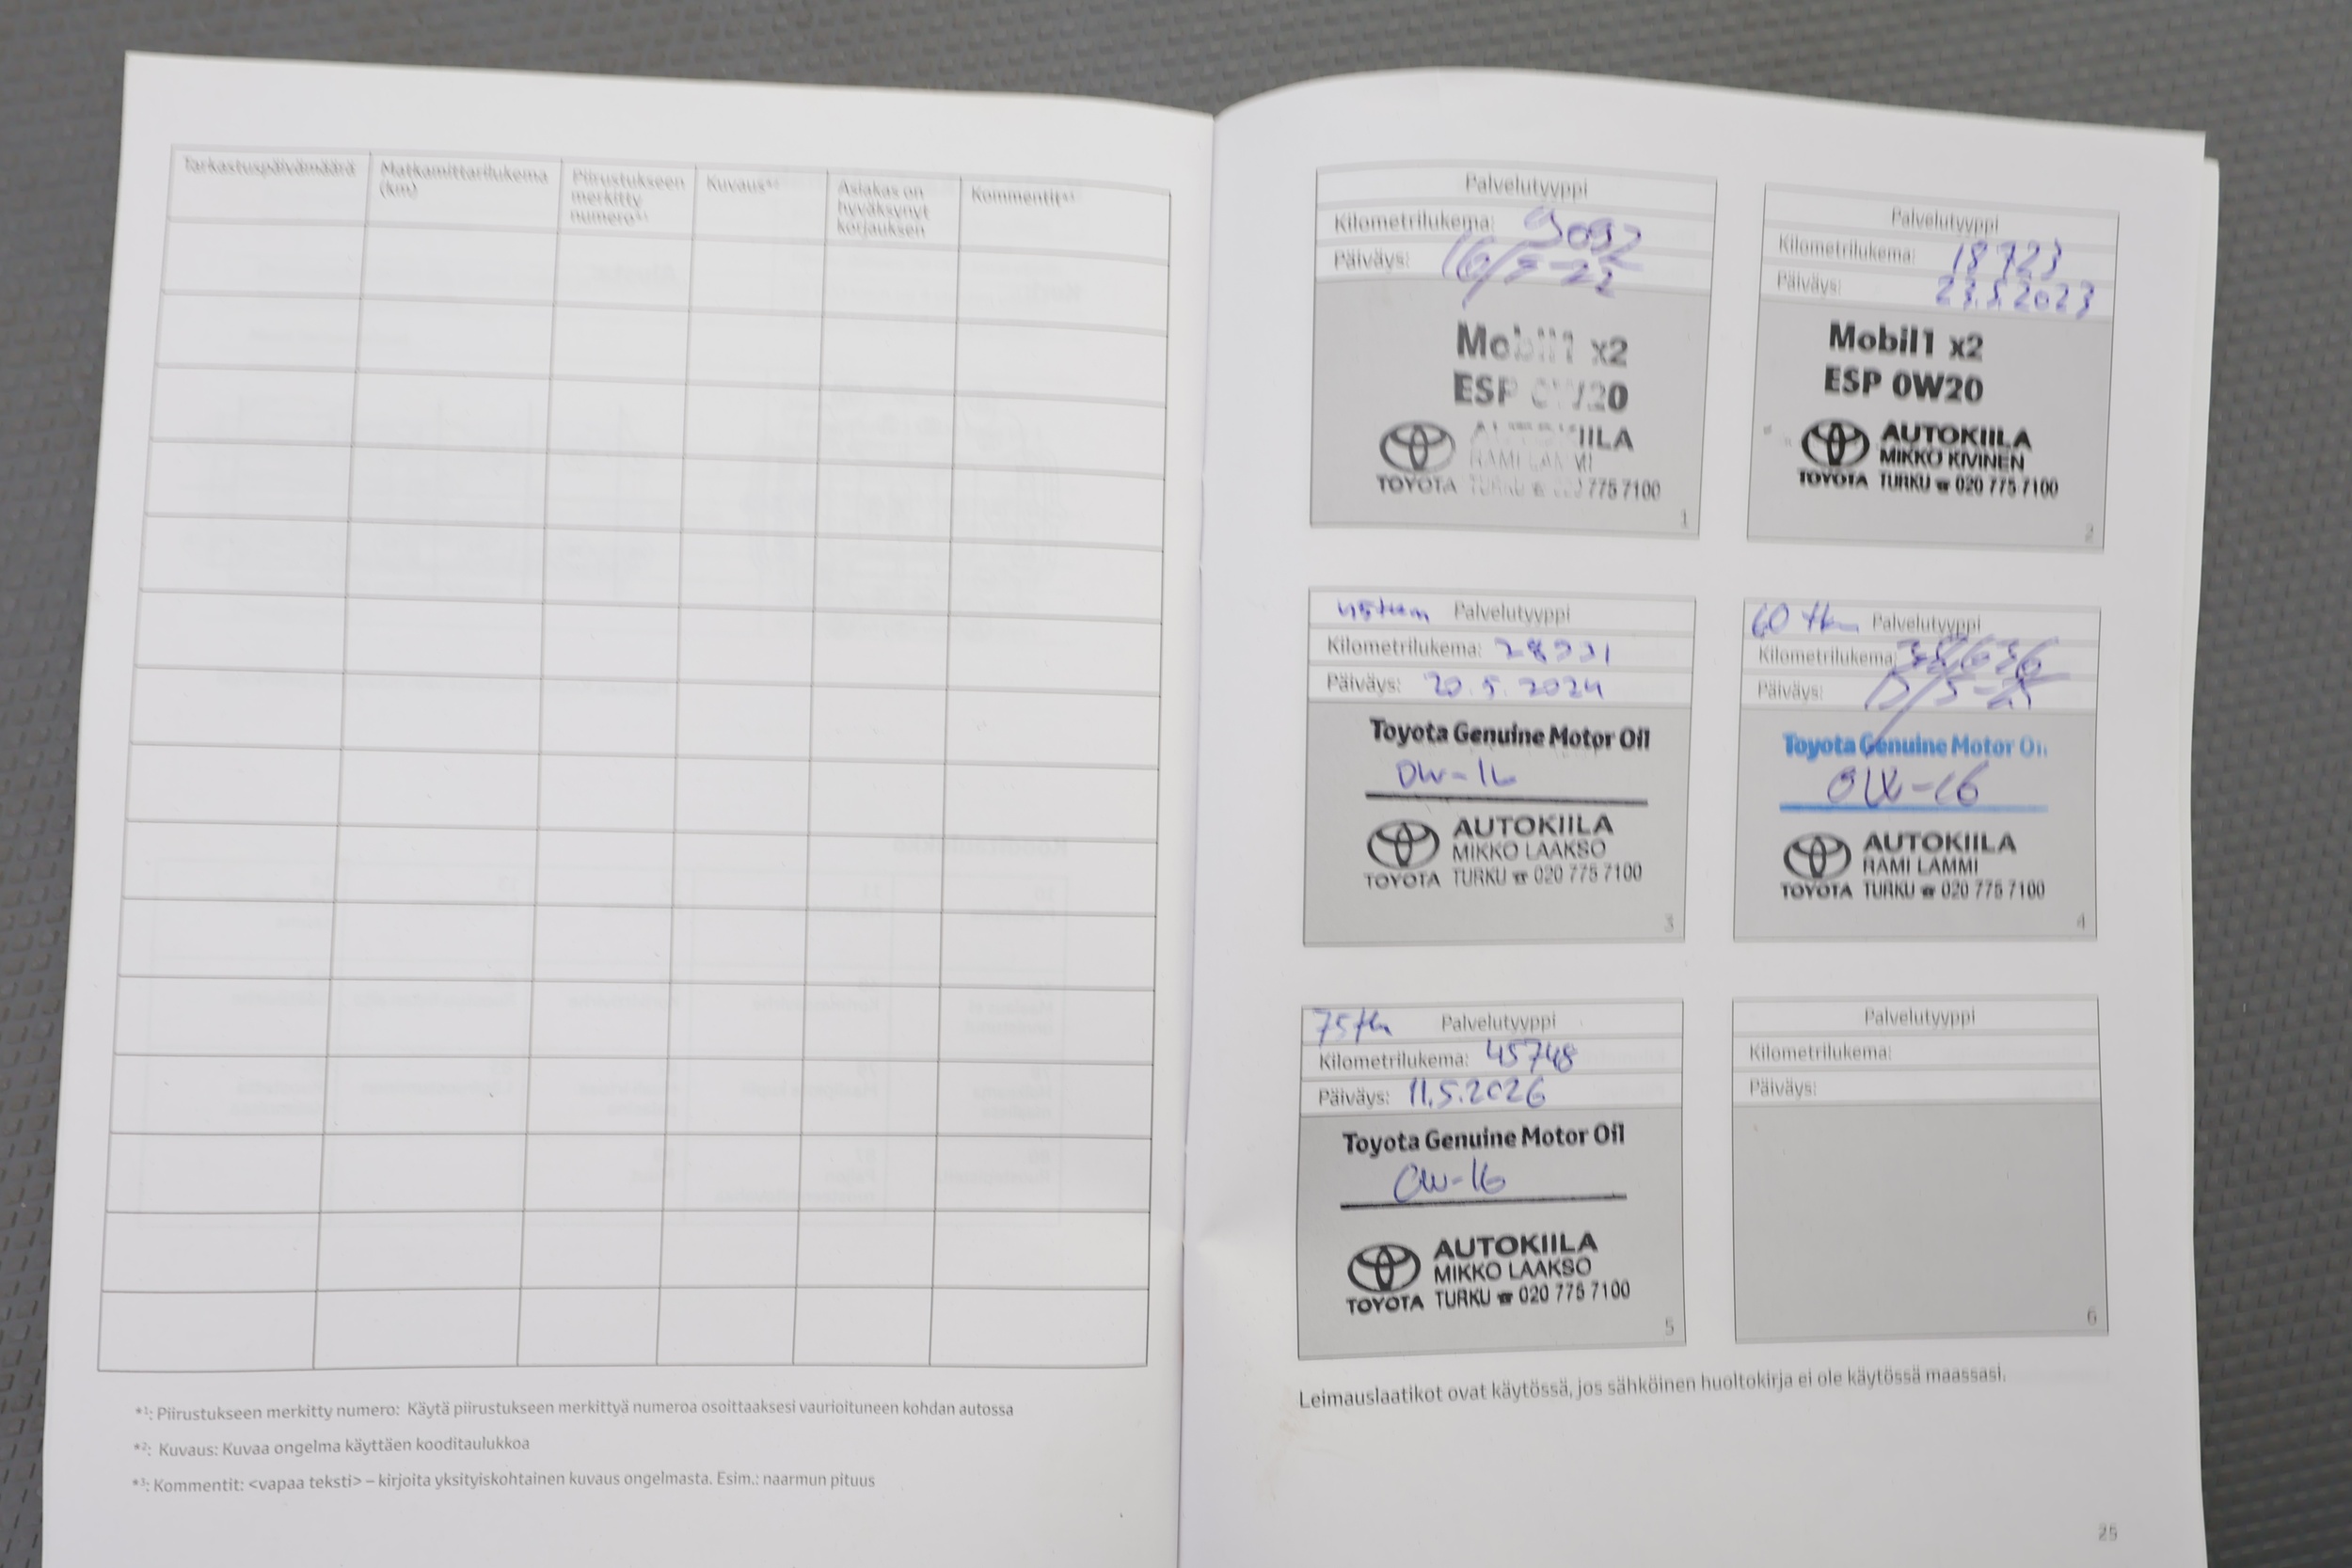 Tarkastuspäivämäärä
Matkamittarilukema
(km)
Piirustukseen
merkitty
numero*¹
Kuvaus*²
Asiakas on
hyväksynyt
korjauksen
Kommentit*³
*¹: Piirustukseen merkitty numero: Käytä piirustukseen merkittyä numeroa osoittaaksesi vaurioituneen kohdan autossa
*²: Kuvaus: Kuvaa ongelma käyttäen kooditaulukkoa
*³: Kommentit: <vapaa teksti> – kirjoita yksityiskohtainen kuvaus ongelmasta. Esim.: naarmun pituus
Palvelutyyppi
Kilometrilukema: 9092
Päiväys: 16/5-22
Mobil1 x2
ESP 0W20
AUTOKIILA
RAMI LAMMI
TOYOTA TURKU ☎ 020 775 7100
1
Palvelutyyppi
Kilometrilukema: 18723
Päiväys: 23.5.2023
Mobil1 x2
ESP 0W20
AUTOKIILA
MIKKO KIVINEN
TOYOTA TURKU ☎ 020 775 7100
2
Palvelutyyppi
Kilometrilukema:
Päiväys: 20.5.2024
Toyota Genuine Motor Oil
0W-16
AUTOKIILA
MIKKO LAAKSO
TOYOTA TURKU ☎ 020 775 7100
3
60 tkm Palvelutyyppi
Kilometrilukema: 38636
Päiväys:
Toyota Genuine Motor Oil
0W-16
AUTOKIILA
RAMI LAMMI
TOYOTA TURKU ☎ 020 775 7100
4
75 tkm Palvelutyyppi
Kilometrilukema: 45748
Päiväys: 11.5.2026
Toyota Genuine Motor Oil
0W-16
AUTOKIILA
MIKKO LAAKSO
TOYOTA TURKU ☎ 020 775 7100
5
Palvelutyyppi
Kilometrilukema:
Päiväys:
6
Leimauslaatikot ovat käytössä, jos sähköinen huoltokirja ei ole käytössä maassasi.
25